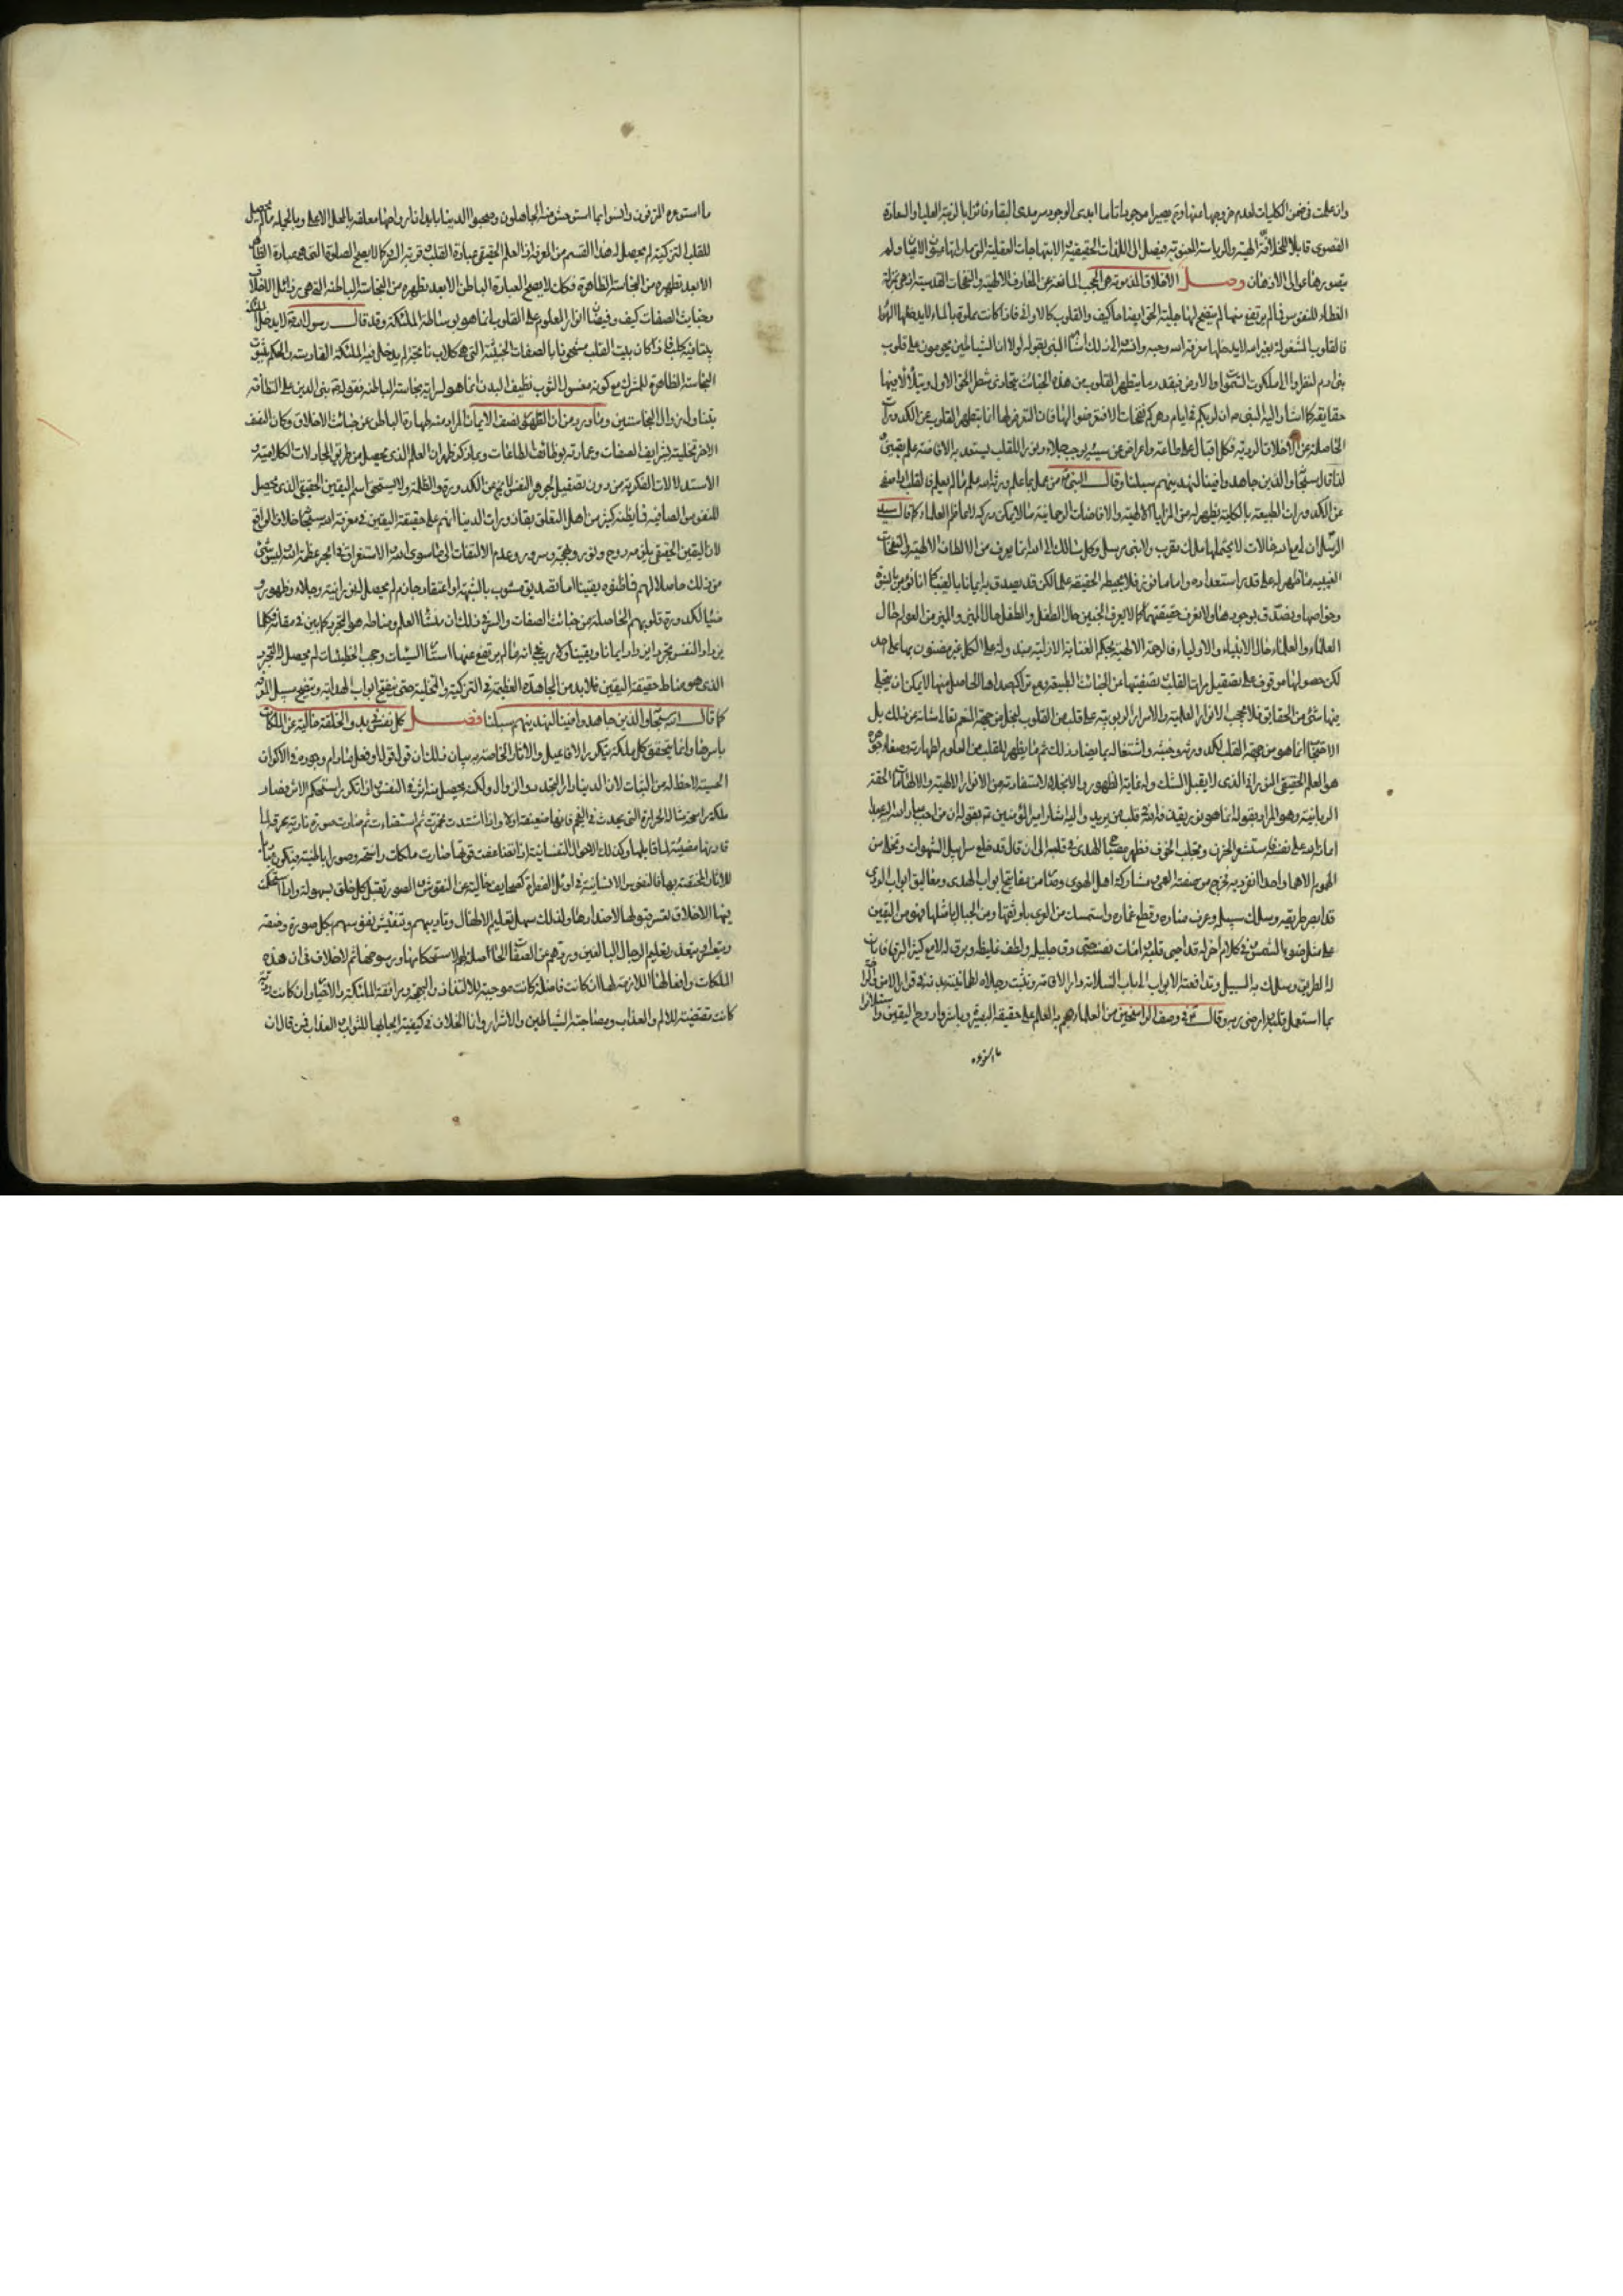 وان علمت في ضمن الكليات لعدم خروجها منها وتم يصير موجودا تاما ابدى الوجود سرمدى البقاء فائزا بالرتبة العليا والسعادة
القصوى قابلا للخلافة الالهية والرياسة المعنوية فيصل الى اللذات الحقيقية والابتهاجات العقلية التى ما راتها عيون الاعيان ولم
يتصورها عوالى الاذهان وصل الاخلاق المذمومة هى الحجب المانعة عن المعارف الالهية والنفحات القدسية اذ هى بمنزلة
الغطاء للنفوس فما لم يرتفع عنها لم يتضح لها جلية الحق ايضاحا كيف والقلوب كالاوانى فاذا كانت مملوة بالماء لا يدخلها الهواء
فالقلوب المشغولة بغير الله لا يدخلها معرفة الله وحبه وانسه والى ذلك اشار النبى بقوله لولا ان الشياطين يحومون على قلوب
بنى ادم لنظروا الى ملكوت السموات والارض فبقدر ما يتطهر القلوب من هذه الخبائث يتحاذى شطر الحق الاول ويتلألأ فيها
حقايقه كما اشار اليه النبى ص ان لربكم فى ايام دهركم نفحات الا فتعرضوا لها فان التعرض لها انما بتطهير القلوب عن الكدورات
الحاصلة عن الاخلاق الردية فكل اقبال على طاعة واعراض عن سيئة يوجب جلاء ونورا للقلب يستعد به لافاضة علم يقينى
لذا قال سبحانه والذين جاهدوا فينا لنهدينهم سبلنا وقال النبى ص من عمل بما علم ورثه الله علم ما لم يعلم فالقلب اذا صفى
عن الكدورات الطبيعة بالكلية يظهر له من المزايا الالهية والافاضات الرحمانية ما لا يمكن دركه لاعاظم العلماء كما قال سيد
الرسل ان لى مع الله حالات لا يحتملها ملك مقرب ولا نبى مرسل وكل سالك الى الله انما يعرف من الالطاف الالهية والنفحات
الغيبية ما ظهر له على قدر استعداده واما ما فوقه فلا يحيط به الحقيقة علما لكن قد يصدق به ايمانا بالغيب كما انا نؤمن بالنبوة
وخواصها ونصدق بوجودها ولا نعرف حقيقتهما كما لا يعرف الجنين حال الطفل والطفل حال المميز والمميز من العوام حال
العلماء والعلماء حال الانبياء والاولياء فالرحمة الالهية بحكم العناية الازلية مبذولة على الكل غير مضنون بها على احد
لكن حصولها موقوف على تصقيل مرات القلب وتصفيتها عن الخبائث الطبيعة ومع تراكم صداها الحاصل منها لا يمكن ان يتجلى
فيها شئ من الحقايق فلا يحجب الانوار العلمية والاسرار الربوبية عن قلب من القلوب لبخل من جهة المنعم تعالى شانه عن ذلك بل
الاحتجاب انما هو من جهة القلب لكدورته وخبثه واشتغاله بما يضاد ذلك ثم ما يظهر للقلب من العلوم لطهارته وصفاء جوهره
هو العلم الحقيقى النورانى الذى لا يقبل الشك وله غاية الظهور والانجلاء لاستفادته من الانوار الالهية والالهامات الحقة
الربانية وهو المراد بقوله انما هو نور يقذفه الله فى قلب من يريد واليه اشار امير المؤمنين ع بقوله ان من احب عباد الله اليه عبدا
اعانه الله على نفسه فاستشعر الحزن وتجلبب الخوف فظهر مصباح الهدى فى قلبه الى ان قال قد خلع سرابيل الشهوات وتخلى من
الهموم الا هما واحدا انفرد به فخرج من صفة العمى ومشاركة اهل الهوى وصار من مفاتيح ابواب الهدى ومغاليق ابواب الردى
قد ابصر طريقه وسلك سبيله وعرف مناره وقطع غماره واستمسك من العرى باوثقها ومن الحبال بامتنها فهو من اليقين
على مثل ضوء الشمس وفى كلام اخر له قد احيى قلبه وامات نفسه حتى دق جليله ولطف غليظه وبرق له لامع كثير البرق فابان
له الطريق وسلك به السبيل وتدافعته الابواب الى باب السلامة ودار الاقامة وثبتت رجلاه لطمانينة بدنه فى قرار الامن والراحة
بما استعمل قلبه وارضى ربه وقال ع فى وصف الراسخين من العلماء هجم بهم العلم على حقيقة البصيرة وباشروا روح اليقين واستلانوا
ما استوعره
ما استوعره المترفون وانسوا بما استوحش منه الجاهلون وصحبوا الدنيا بابدان ارواحها معلقة بالمحل الاعلى وبالجملة ما لم يحصل
للقلب التزكية لم يحصل له هذا القسم من المعرفة اذ العلم الحقيقى عبادة القلب وقربة السر وكما لا يصح الصلوة التى هى عبادة الظاهر
الا بعد تطهره من النجاسة الظاهرة فكذلك لا يصح العبادة الباطن الا بعد تطهره من النجاسة الباطنة التى هى رذائل الاخلاق
وخبايث الصفات كيف وفيضان انوار العلوم على القلوب انما هو بوساطة الملئكة وقد قال رسول الله ص لا يدخل الملئكة
بيتا فيه كلب فاذا كان بيت القلب مشحونا بالصفات الخبيثة التى هى كلاب نابحة لم يدخل فيه الملئكة القادسة والحكم بثبوت
النجاسة الظاهرة للمشرك مع كونه مغسول الثوب نظيف البدن انما هو لسراية نجاسته الباطنة فقوله ص بنى الدين على النظافة
يتناول زوال النجاستين وما ورد من ان الطهور نصف الايمان المراد منه طهارة الباطن عن خبائث الاخلاق وكان النصف
الاخر تحليته بشرايف الصفات وعمارته بوظائف الطاعات وبما ذكر ظهر ان العلم الذى يحصل من طريق المجادلات الكلامية و
الاستدلالات الفكرية من دون تصقيل لجوهر النفس لا يخ عن الكدورة والظلمة ولا يستحق اسم اليقين الحقيقى الذى يحصل
للنفوس الصافية فما يظنه كثير من اهل التعلق بقاذورات الدنيا انهم على حقيقة اليقين فى معرفة الله سبحانه خلاف الواقع
لان اليقين الحقيقى يلزمه روح ونور وبهجة وسرور وعدم الالتفات الى ما سوى الله والاستغراق فى ابحر عظمة الله وليس شئ
من ذلك حاصلا لهم فما ظنوه يقينا اما تصديق مشوب بالشبهة او اعتقاد جازم لم يحصل له نورانية وجلاء وظهور و
ضياء لكدورة قلوبهم الحاصلة من خبائث الصفات والسر فى ذلك ان منشا العلم ومناطه هو التجرد كما بين فى مقامه فكلما
يزداد النفس تجردا يزداد ايمانا ويقينا ولا ريب فى انه ما لم يرتفع عنها استار السيئات وحجب الخطيئات لم يحصل لها التجرد
الذى هو مناط حقيقة اليقين فلابد من المجاهدة العظيمة فى التزكية والتحلية حتى ينفتح ابواب الهداية ويتضح سبيل المعرفة
كما قال الله سبحانه والذين جاهدوا فينا لنهدينهم سبلنا فصل كل نفس فى بدو الخلقة خالية عن الملكات
باسرها وانما يتحقق كل ملكة بتكرر الافاعيل والاثار الخاصة به بيان ذلك ان كل قول او فعل ما دام وجوده فى الاكوان
الحسية لا حظ له من الثبات لان الدنيا دار التجدد والزوال ولكنه يحصل منه اثر فى النفس فاذا تكرر استحكم الاثر فصار
ملكة راسخة مثاله الحرارة التى يحدث فى الفحم فانها ضعيفة اولا واذا اشتدت تجمرت ثم استضاءت ثم صارت صورة نارية محرقة لما
قارنها مضيئة لما قابلها وكذلك الاحوال النفسانية اذا تضاعفت قوتها صارت ملكات راسخة وصورا باطنية وتكون مبادى
للاثار المختصة بها فالنفوس الانسانية فى اوائل الفطرة كصحايف خالية عن النقوش والصور تقبل كل خلق بسهولة واذا استحكمت
فيها الاخلاق تعسر قبولها لاضدادها ولذلك سهل تعليم الاطفال وتاديبهم وتنقيش نفوسهم بكل صورة وصفة
ويتعذر او يتعسر تعليم الرجال البالغين وردهم عن الصفات الحاصلة لهم لاستحكامها ورسوخها ثم لا خلاف فى ان هذه
الملكات وافعالها اللازمة لها ان كانت فاضلة كانت موجبة للالتذاذ والبهجة ومرافقة الملئكة والاخيار وان كانت ردية
كانت مقتضية للالم والعذاب ومصاحبة الشياطين والاشرار وانما الخلاف فى كيفية ايجابها للثواب والعذاب فمن قال ان